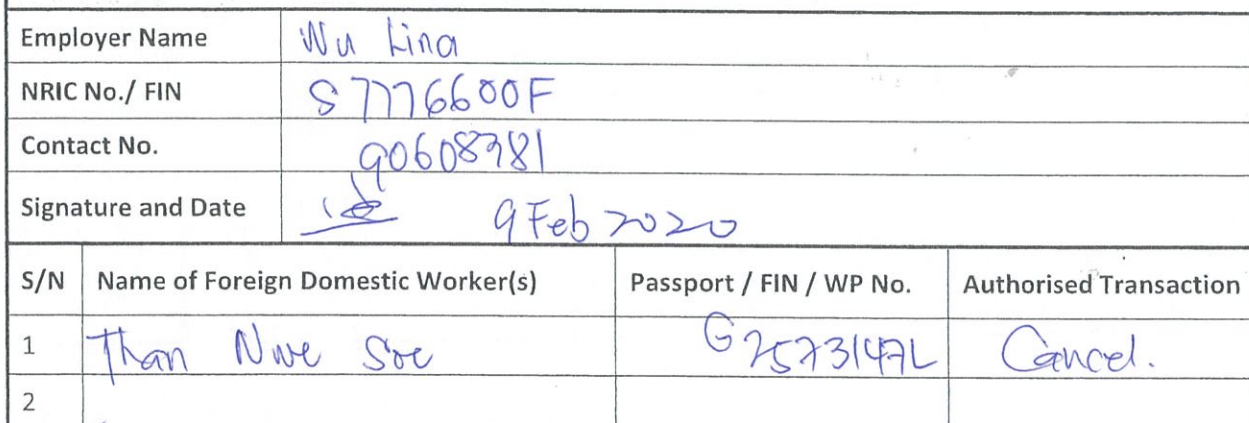 Employer Name Wu Lina
NRIC No./ FIN S7776600F
Contact No. 90608381
Signature and Date 9 Feb 2020
S/N Name of Foreign Domestic Worker(s) Passport / FIN / WP No. Authorised Transaction
1 Than Nwe Soe Cancel.
2